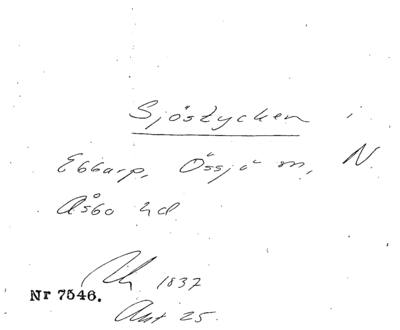 Sjöstycken i
Ebbarp, Össjö sn, N.
Åsbo hd
1837
Nr 7546.
Akt 25.